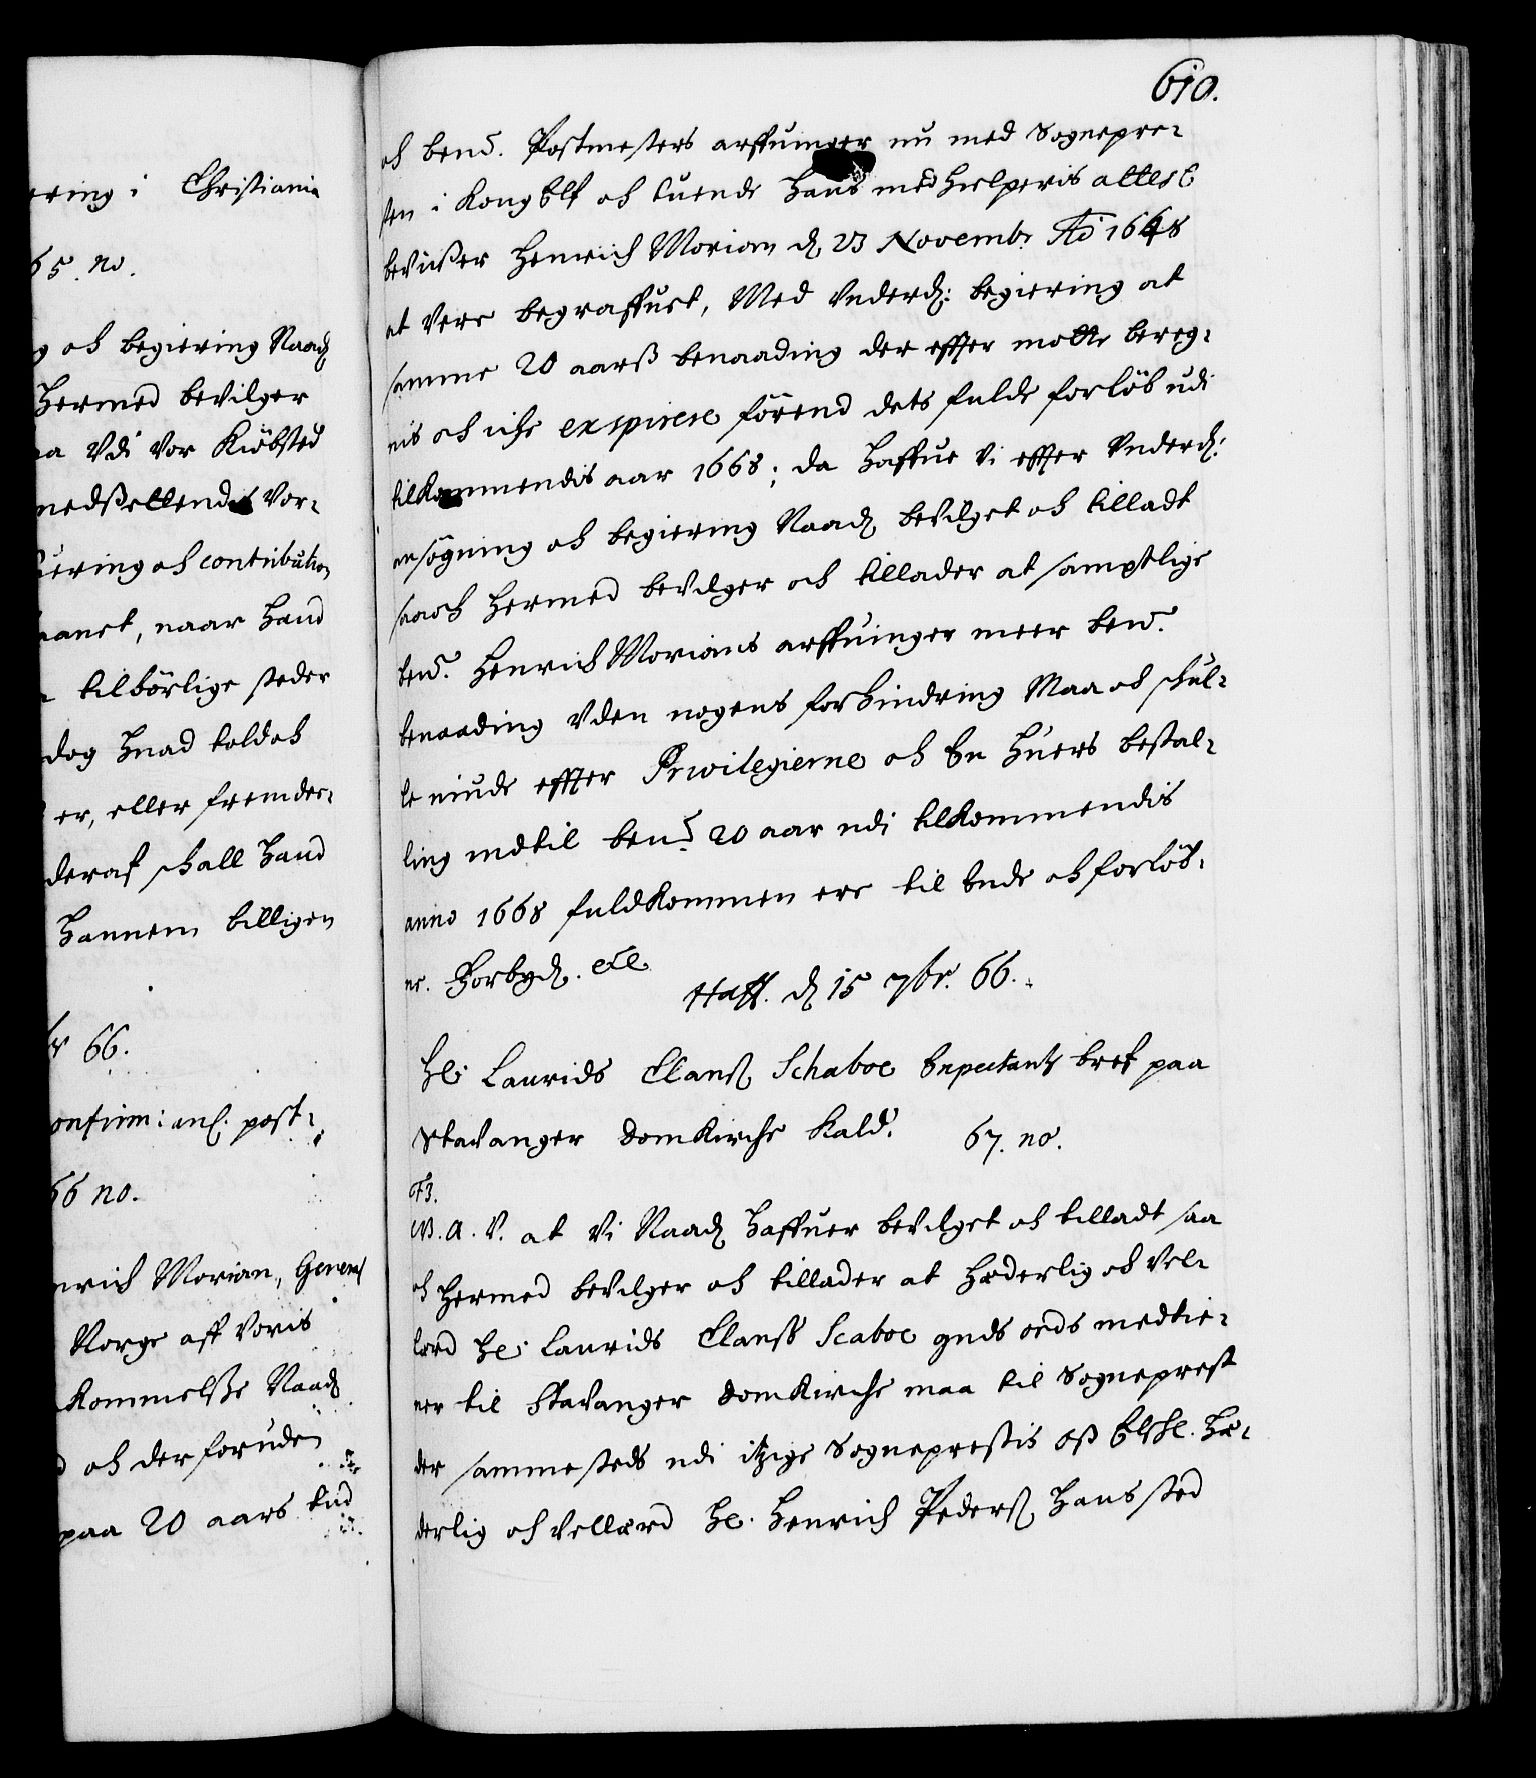 ering i Christiania
65. no.
g och begiering Naad
Hermed bevilger
aa Vdi vor Kiöbsted
nedßettendis vor-
uering och contribution
aanet, naar hand
tilbörlige steder
dog huad toldoch
er, eller fremder-
deraf schall hand
hannem billigen
66.
onfirm: anl. post-
66 no.
nrich Morian, General
Norge aff voris
Kommelsse Naad
och der foruden
paa 20 aars tid
610.
och bemt. Postmesters arffuinger nu med Sognepre-
sten i KongElf och tuende hans medhielperis attest
bevißer Henrich Morian d. 23 Novemb. Ao 1648
at vere begraffuet, Med vnderd: begiering at
samme 20 aarß benaading der effter motte bereg-
nis och iche exspirere förend dets fulde forlöb udi
tilkommendis aar 1668; da haffue vi effter vnderd:
ansögning och begiering Naad. bevilget och tilladt
saa och hermed bevilger och tillader at samptlige
bemt. Henrich Morians arffuinger meer bemt.
benaading vden nogens forhindring Maa och schul-
le niude effter Privilegierne och En huers bestal-
ling indtil bemt. 20 aar udi tilkommendis
anno 1668 fuldkommen ere til Ende och forlöb-
ne. Forbyd. etc
Haff. d. 15 7br. 66.
Hl: Laurids Clauß Schaboe Expectantz bref paa
Stavanger Domkirche kald. 67. no.
F3.
G. A. V. at vi Naad. haffuer bevilget och tilladt saa
och hermed bevilger och tillader at hæderlig och vel-
lerd Hl: Laurids Clauß Scaboe guds ords medtie-
ner til Stavanger Domkirche maa til Sogneprest
der sammesteds udi itzige Sogneprestis oß Elskl. Hæ-
derlig och vellærd Hl. Henrich Pederß hans sted